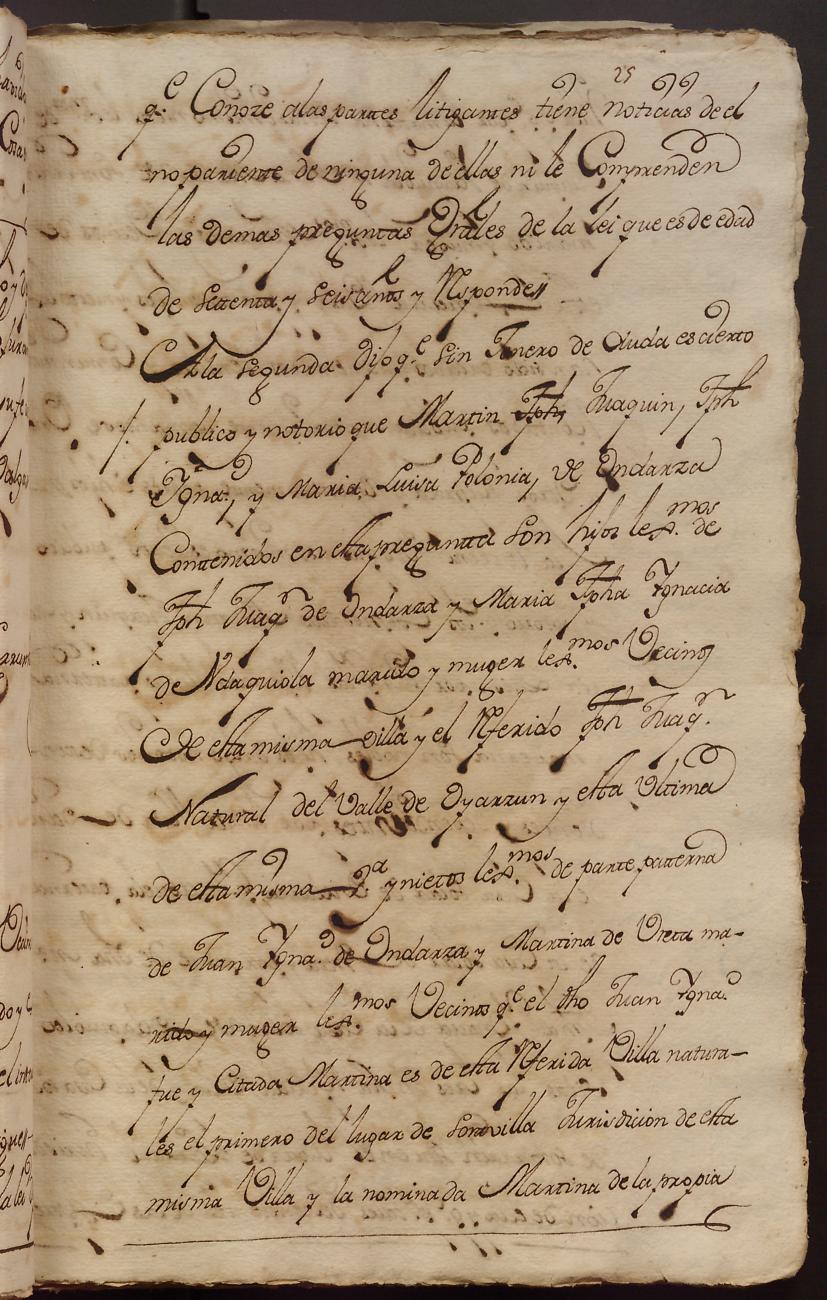 25
q.e Conoze alas partes litigantes tiene noticias de el
no pariente de ninguna de ellas ni le Comprenden
las demas preguntas Gnrles de la lei que es de edad
de Settenta y Seis años y Responde
A la segunda dijo q.e sin Jenero de duda es cierto
publico y notorio que Martin Jph, Juaquin, Jph
Ygna.o, y Maria Luisa Polonia, de Yndarza
Contenidos en esta preguntta son hijos lexmos de
Jph Juaqn de Yndarza y Maria Jpha Ygnacia
de Ndaguiola marido y muger lexmos Vecinos
de esta misma villa y el Referido Jph Juaqn
Natural del Valle de Oyarzun y esta Ultima
de esta misma V.a y nietos lexmos de parte paterna
de Juan Ygna.o de Yndarza y Martina de Ureta ma-
rido y muger lexmos Vecinos q.e el dho Juan Ygna.o
fue y Citada Martina es de esta Referida Villa natura-
les el primero del lugar de Jurisdicion de esta
misma Villa y la nominada Martina de la propia